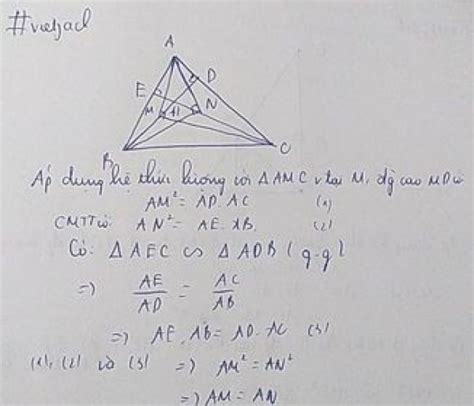 #vietjack
A
E D
M H N
B C
Áp dụng hệ thức lượng với ΔAMC v tại M, đg cao MD có
AM² = AD. AC (1)
CMTT có: AN² = AE. AB. (2)
Có: ΔAEC ∽ ΔADB (g-g)
=) AE/AD = AC/AB
=) AE. AB = AD. AC (3)
(1), (2) và (3) =) AM² = AN²
=) AM = AN